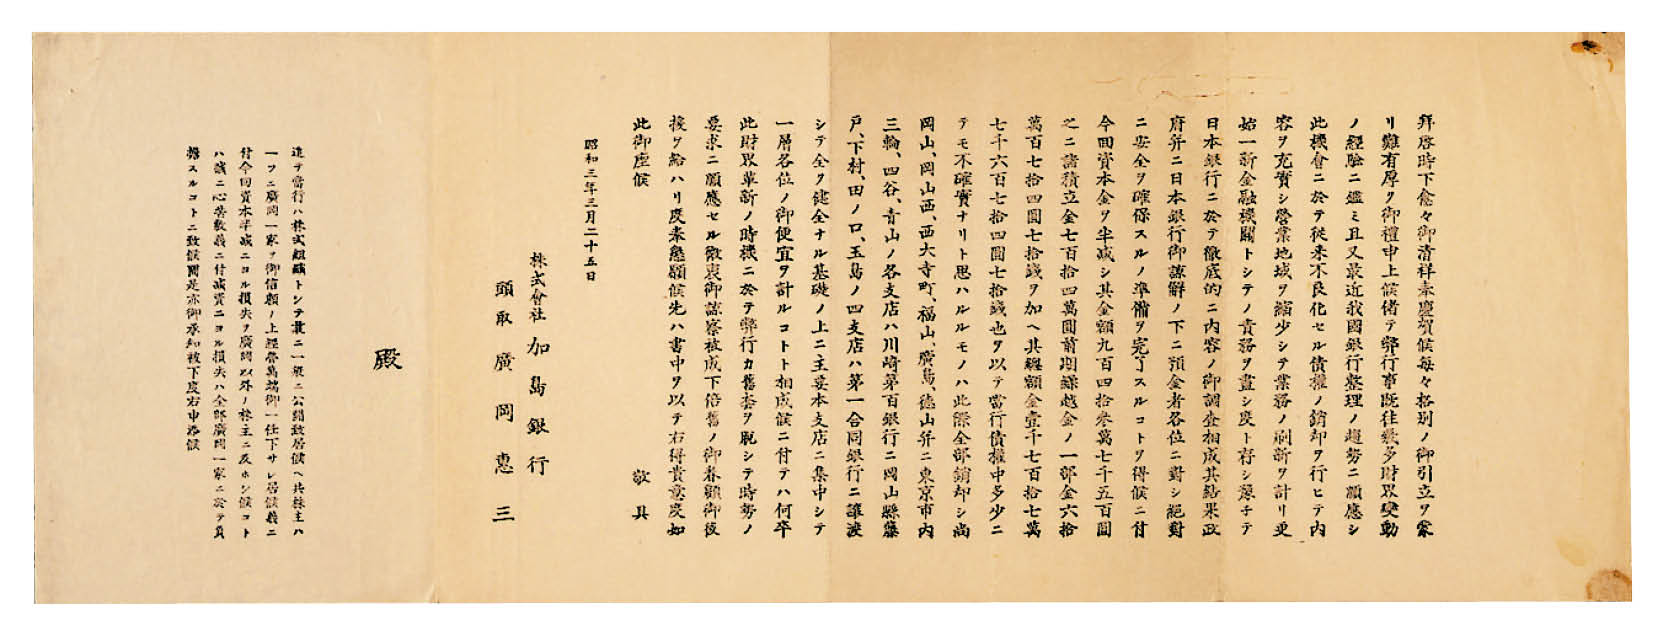 拜啓時下愈々御清祥奉慶賀候每々格別ノ御引立ヲ蒙
リ難有厚ク御禮申上候偖テ弊行事既往幾多財界變動
ノ經驗ニ鑑ミ且又最近我國銀行整理ノ趨勢ニ順應シ
此機會ニ於テ從來不良化セル債權ノ銷却ヲ行ヒテ內
容ヲ充實シ營業地域ヲ縮少シテ業務ノ刷新ヲ計リ更
始一新金融機關トシテノ責務ヲ盡シ度ト存シ豫チテ
日本銀行ニ於テ徹底的ニ內容ノ御調査相成其結果政
府并ニ日本銀行御諒解ノ下ニ預金者各位ニ對シ絕對
ニ安全ヲ確保スルノ準備ヲ完了スルコトヲ得候ニ付
今回資本金ヲ半減シ其金額九百四拾參萬七千五百圓
之ニ諸積立金七百拾四萬圓前期繰越金ノ一部金六拾
萬百七拾四圓七拾錢ヲ加ヘ其總額金壹千七百拾七萬
七千六百七拾四圓七拾錢也ヲ以テ當行債權中多少ニ
テモ不確實ナリト思ハルルモノハ此際全部銷却シ尙
岡山、岡山西、西大寺町、福山、廣島、德山并ニ東京市內
三輪、四谷、青山ノ各支店ハ川崎第百銀行ニ岡山縣藤
戶、下村、田ノ口、玉島ノ四支店ハ第一合同銀行ニ讓渡
シテ全ク健全ナル基礎ノ上ニ主要本支店ニ集中シテ
一層各位ノ御便宜ヲ計ルコトト相成候ニ付テハ何卒
此財界革新ノ時機ニ於テ弊行カ舊套ヲ脫シテ時勢ノ
要求ニ順應セル微衷御諒察被成下倍舊ノ御眷顧御後
援ヲ給ハリ度奉懇願候先ハ書中ヲ以テ右得貴意度如
此御座候 敬具
昭和三年三月二十五日
株式會社 加島銀行
頭取 廣岡惠三
殿
追テ當行ハ株式組織トシテ曩ニ一般ニ公開致居候ヘ共株主ハ
一ツニ廣岡一家ヲ御信賴ノ上經營萬端御一任下サレ居候義ニ
付今回資本半減ニヨル損失ヲ廣岡以外ノ株主ニ及ホシ候コト
ハ誠ニ心苦敷義ニ付減資ニヨル損失ハ全部廣岡一家ニ於テ負
擔スルコトニ致候間是亦御承知被下度右申添候